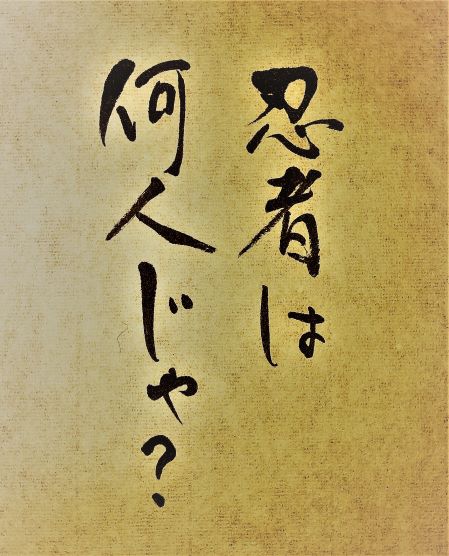 忍者は
何人じゃ?